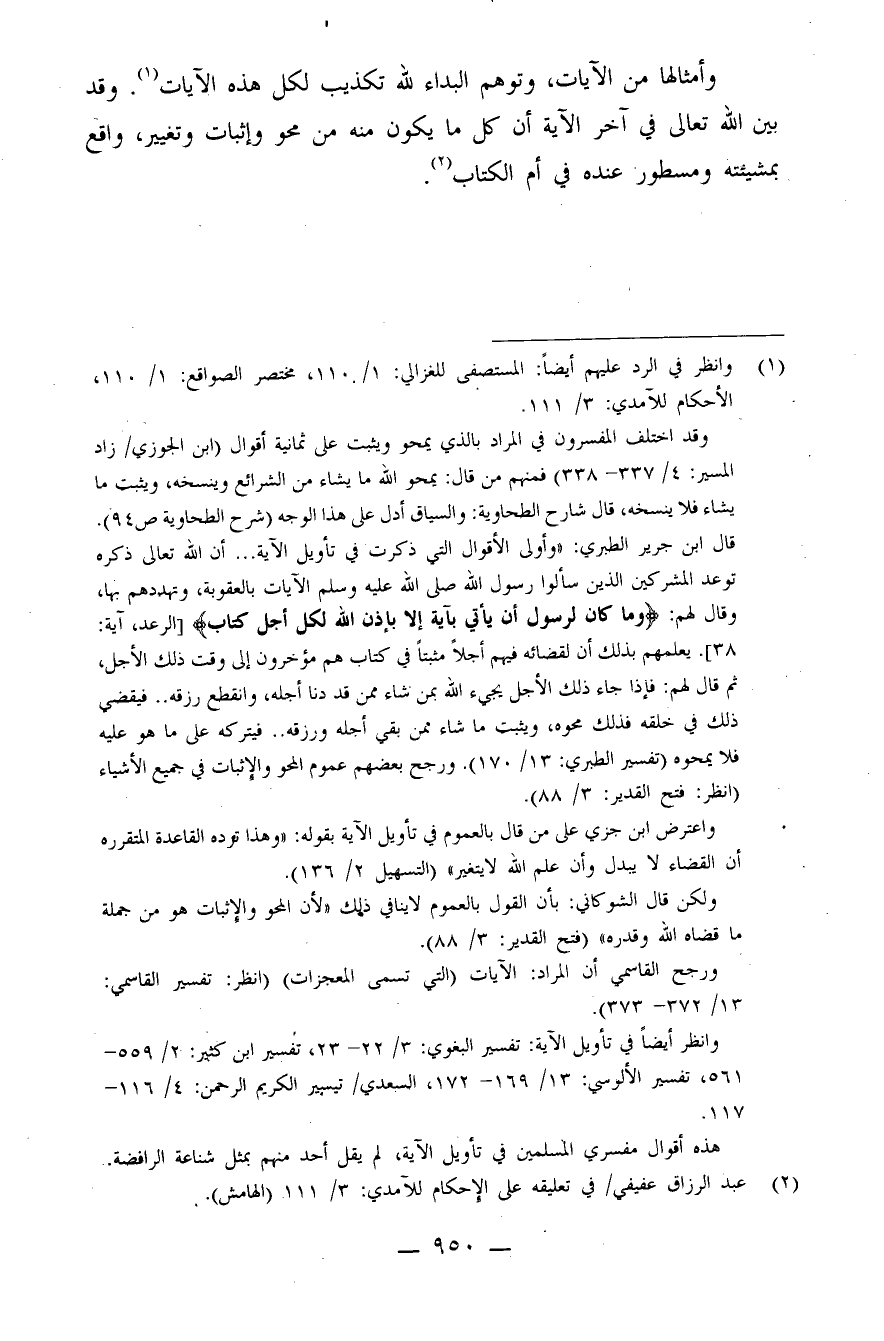 وأمثالها من الآيات، وتوهم البداء لله تكذيب لكل هذه الآيات(١). وقد
بين الله تعالى في آخر الآية أن كل ما يكون منه من محو وإثبات وتغيير، واقع
بمشيئته ومسطور عنده في أم الكتاب(٢).
(١) وانظر في الرد عليهم أيضاً: المستصفى للغزالي: ١/ ١١٠، مختصر الصواقع: ١/ ١١٠،
الأحكام للآمدي: ٣/ ١١١.
وقد اختلف المفسرون في المراد بالذي يمحو ويثبت على ثمانية أقوال (ابن الجوزي/ زاد
المسير: ٤/ ٣٣٧– ٣٣٨) فمنهم من قال: يمحو الله ما يشاء من الشرائع وينسخه، ويثبت ما
يشاء فلا ينسخه، قال شارح الطحاوية: والسياق أدل على هذا الوجه (شرح الطحاوية ص٩٤).
قال ابن جرير الطبري: «وأولى الأقوال التي ذكرت في تأويل الآية... أن الله تعالى ذكره
توعد المشركين الذين سألوا رسول الله صلى الله عليه وسلم الآيات بالعقوبة، وتهددهم بها،
وقال لهم: ﴿وما كان لرسول أن يأتي بآية إلا بإذن الله لكل أجل كتاب﴾ [الرعد، آية:
٣٨]. يعلمهم بذلك أن لقضائه فيهم أجلاً مثبتاً في كتاب هم مؤخرون إلى وقت ذلك الأجل،
ثم قال لهم: فإذا جاء ذلك الأجل يجيء الله بمن شاء ممن قد دنا أجله، وانقطع رزقه.. فيقضي
ذلك في خلقه فذلك محوه، ويثبت ما شاء ممن بقي أجله ورزقه.. فيتركه على ما هو عليه
فلا يمحوه (تفسير الطبري: ١٣/ ١٧٠). ورجح بعضهم عموم المحو والإثبات في جميع الأشياء
(انظر: فتح القدير: ٣/ ٨٨).
واعترض ابن جزي على من قال بالعموم في تأويل الآية بقوله: «وهذا توده القاعدة المتقرره
أن القضاء لا يبدل وأن علم الله لايتغير» (التسهيل ٢/ ١٣٦).
ولكن قال الشوكاني: بأن القول بالعموم لاينافي ذلك «لأن المحو والإثبات هو من جملة
ما قضاه الله وقدره» (فتح القدير: ٣/ ٨٨).
ورجح القاسمي أن المراد: الآيات (التي تسمى المعجزات) (انظر: تفسير القاسمي:
١٣/ ٣٧٢– ٣٧٣).
وانظر أيضاً في تأويل الآية: تفسير البغوي: ٣/ ٢٢– ٢٣، تفسير ابن كثير: ٢/ ٥٥٩–
٥٦١، تفسير الألوسي: ١٣/ ١٦٩– ١٧٢، السعدي/ تيسير الكريم الرحمن: ٤/ ١١٦–
١١٧.
هذه أقوال مفسري المسلمين في تأويل الآية، لم يقل أحد منهم بمثل شناعة الرافضة.
(٢) عبد الرزاق عفيفي/ في تعليقه على الإحكام للآمدي: ٣/ ١١١ (الهامش).
— ٩٥٠ —